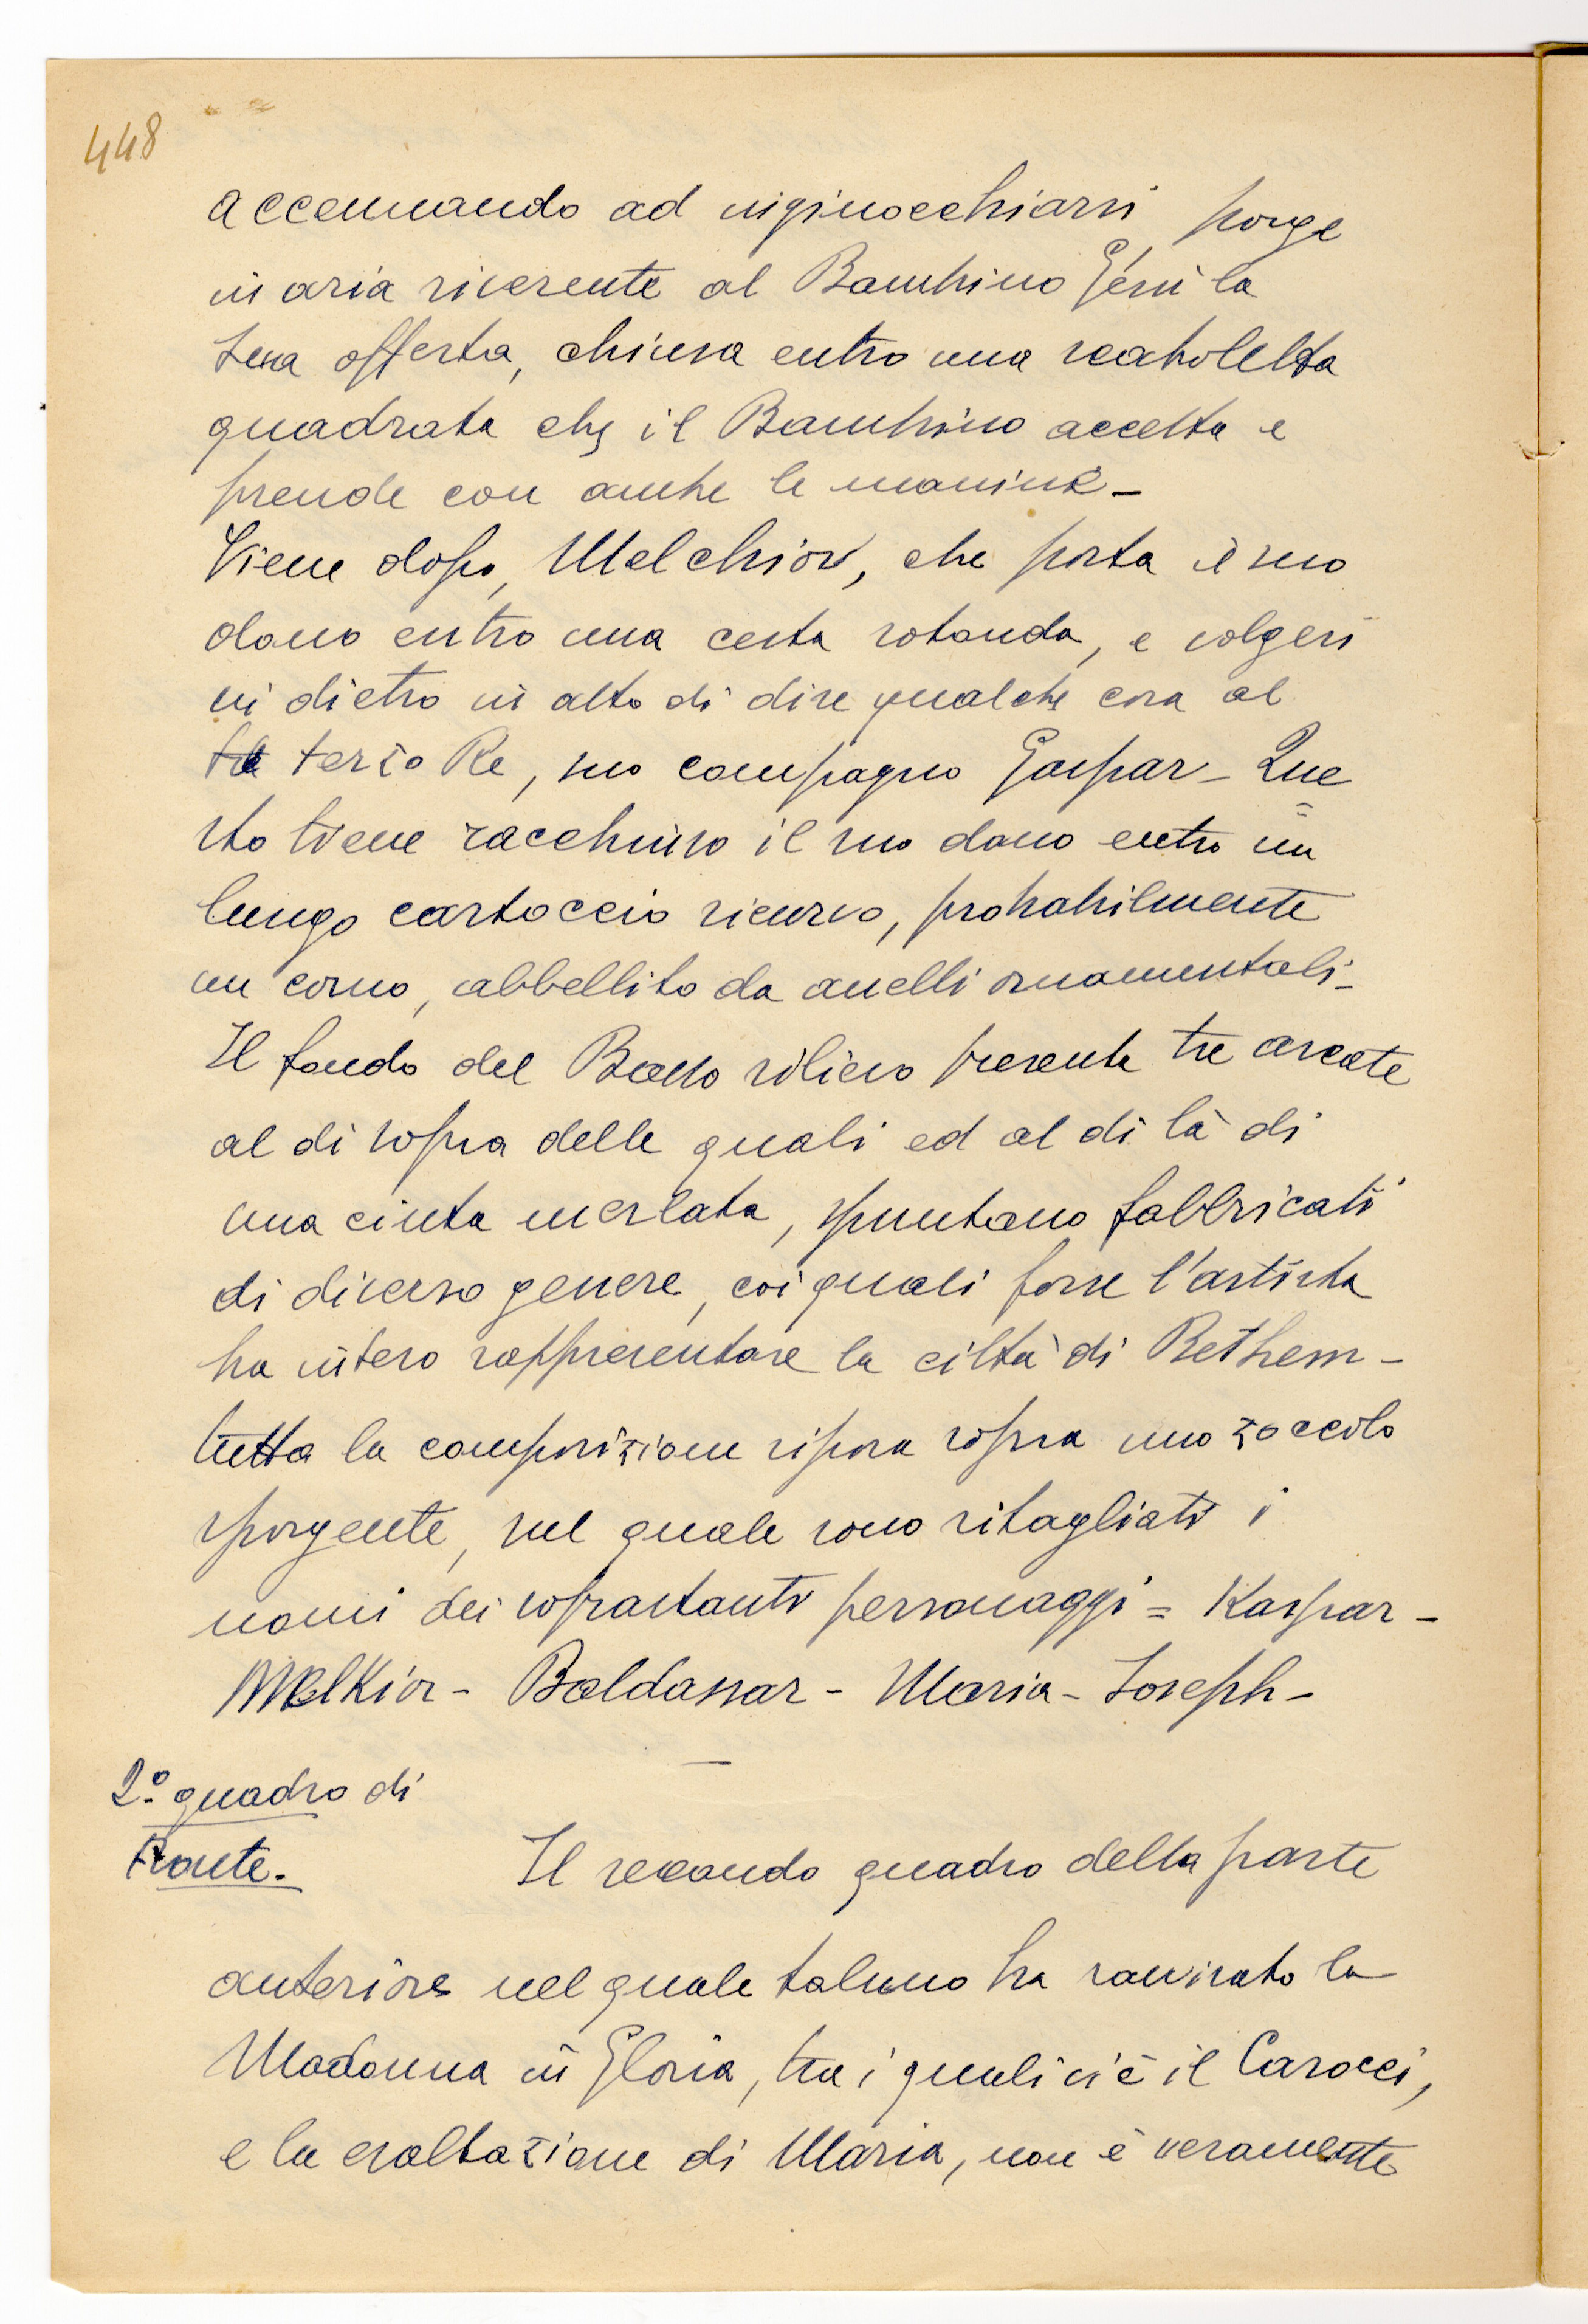 448
accennando ad inginocchiarsi, porge
in aria riverente al Bambino Gesù la
sua offerta, chiusa entro una scatoletta
quadrata che il Bambino accetta e
prende con ambe le manine -
Viene dopo, Melchior, che porta il suo
dono entro una cesta rotonda, e volgesi
in dietro in atto di dire qualche cosa al
terzo Re, suo compagno Gaspar - Que
sto tiene racchiuso il suo dono entro un
lungo cartoccio ricurvo, probabilmente
un corno, abbellito da anelli ornamentali -
Il fondo del Basso rilievo presenta tre arcate
al di sopra delle quali ed al di là di
una cinta merlata, spuntano fabbricati
di diverso genere, coi quali forse l'artista
ha inteso rappresentare la città di Bethem -
tutta la composizione riposa sopra uno zoccolo
sporgente, sul quale sono ritagliati i
nomi dei soprastanti personaggi = Kaspar -
Melkior - Baldassar - Maria - Joseph -
2º quadro di
Fronte.
Il secondo quadro della parte
anteriore nel quale taluno ha ravvisato la
Madonna in Gloria, tra i quali vi è il Carocci,
e la esaltazione di Maria, non è veramente